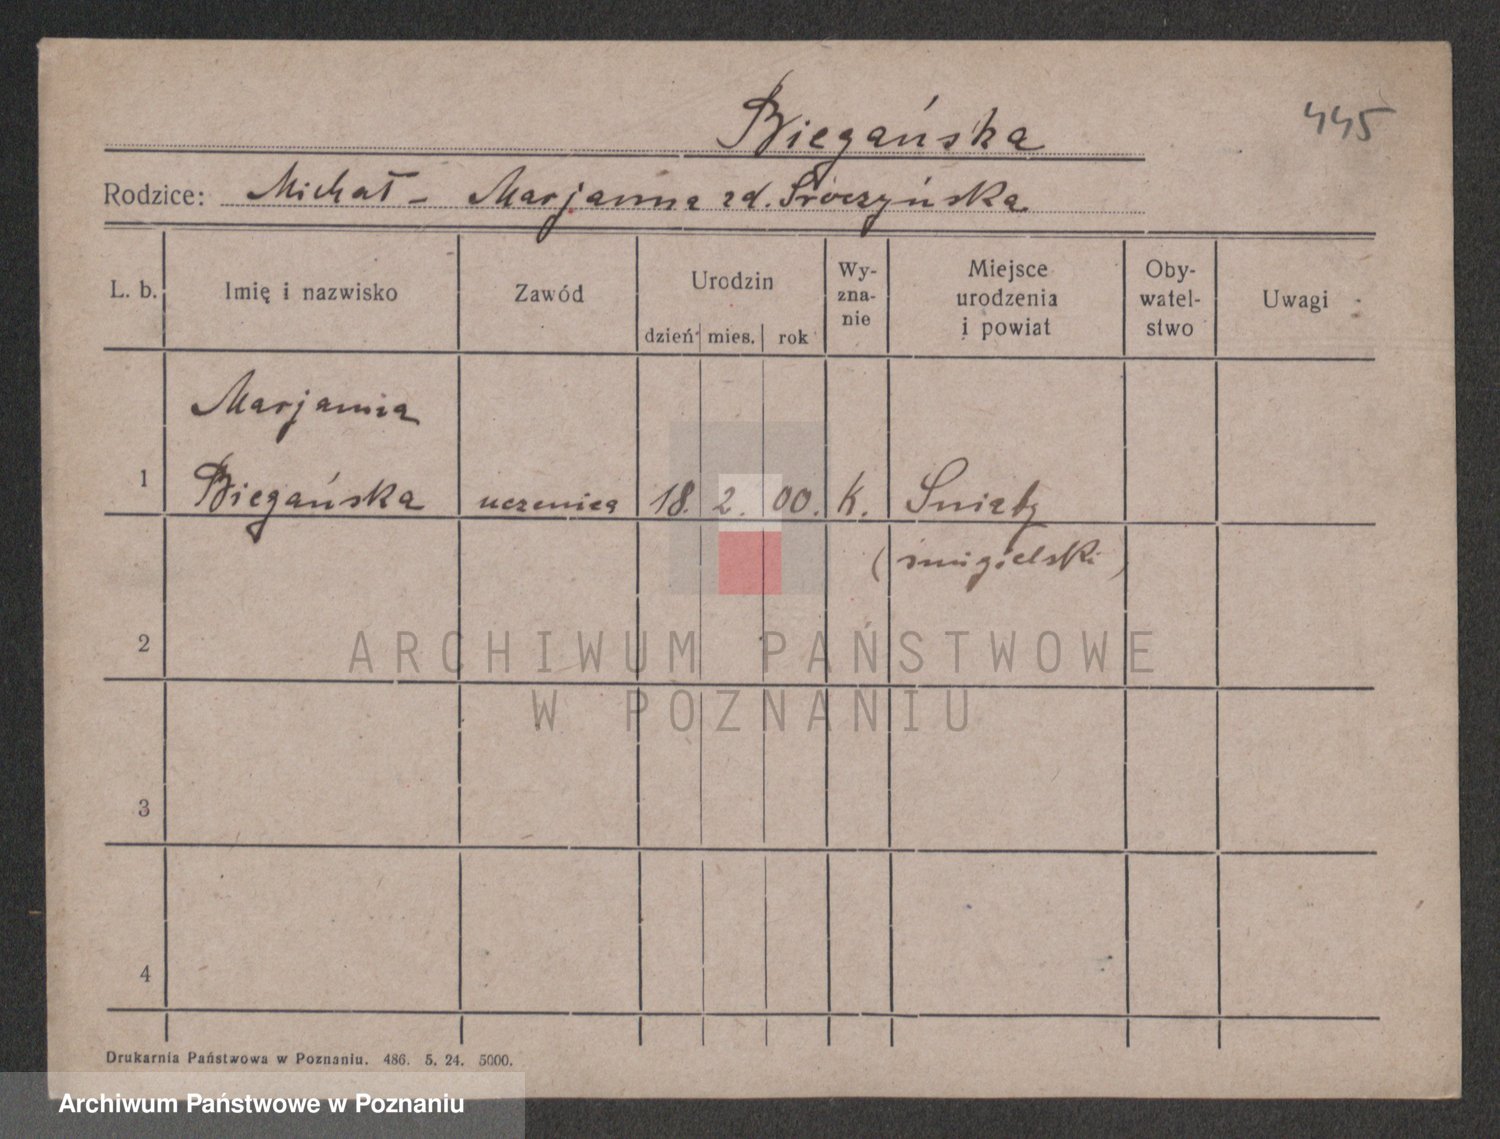 Biegańska
445
Rodzice: Michał - Marjanna zd. Sroczyńska
L. b.
Imię i nazwisko
Zawód
Urodzin
dzień mies. rok
Wy-
zna-
nie
Miejsce
urodzenia
i powiat
Oby-
watel-
stwo
Uwagi
Marjanna
1 Biegańska uczenica 18. 2. 00. K. Śniaty
(śmigielski)
2
3
4
ARCHIWUM PAŃSTWOWE
W POZNANIU
Drukarnia Państwowa w Poznaniu. 486. 5. 24. 5000.
Archiwum Państwowe w Poznaniu